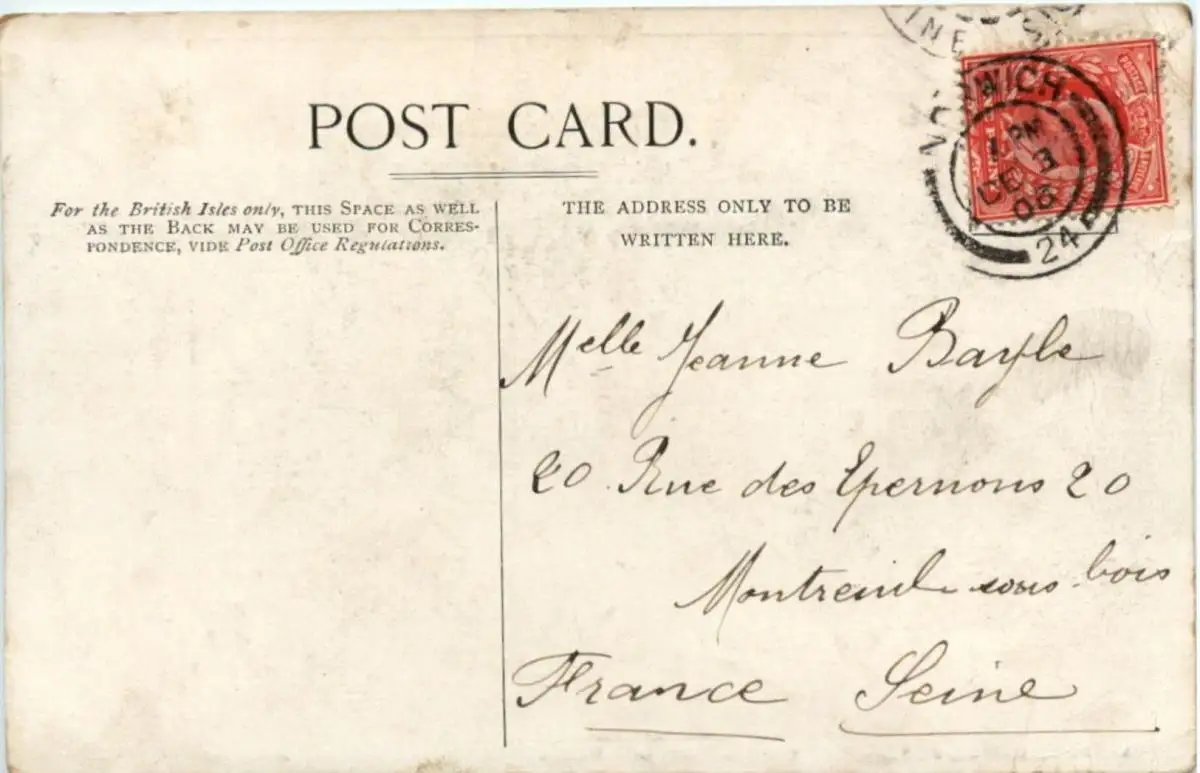 INE
POST CARD.
NORWICH
1 PM
DE 3
06
24
For the British Isles only, THIS SPACE AS WELL
AS THE BACK MAY BE USED FOR CORRES-
PONDENCE, VIDE Post Office Regulations.
THE ADDRESS ONLY TO BE
WRITTEN HERE.
Melle Jeanne Bayle
20 Rue des Epernons 20
Montreuil sous bois
France Seine